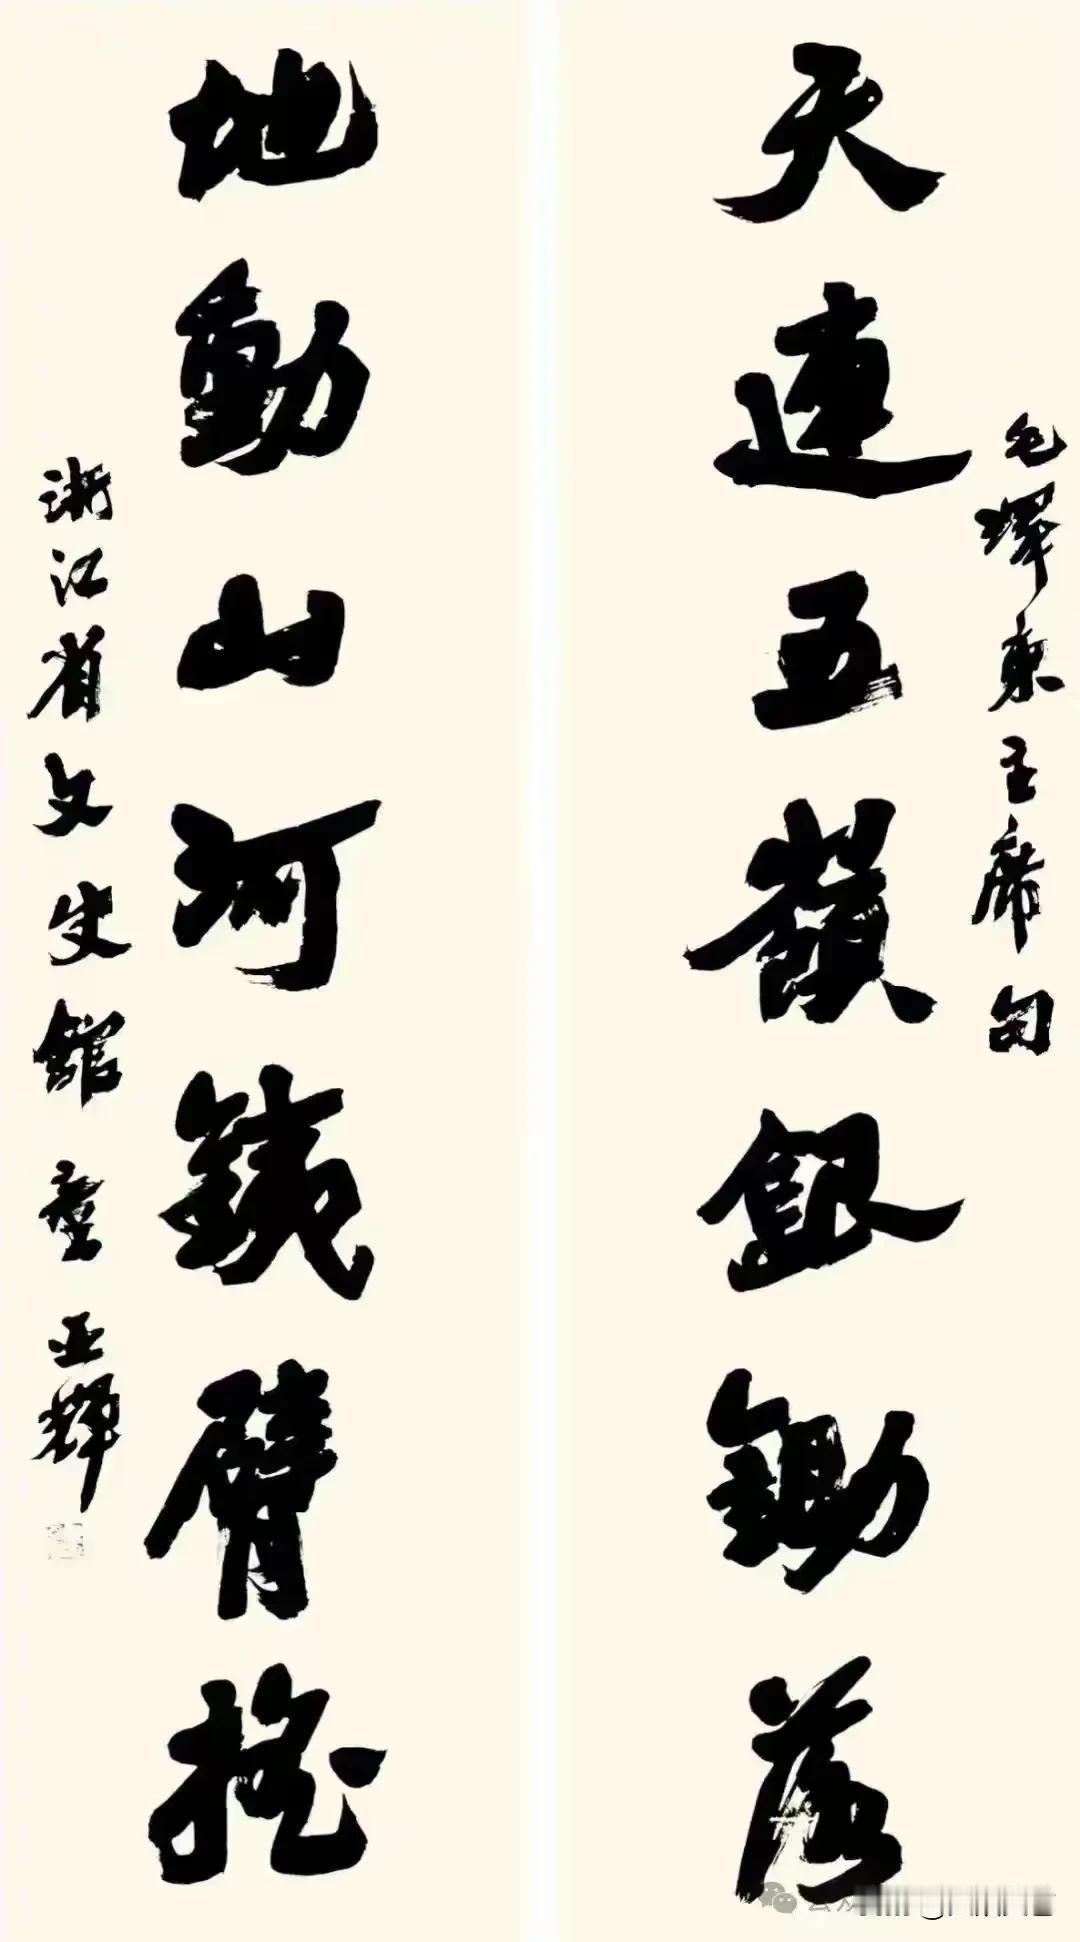 天連五嶺銀鋤落
毛澤東主席句
地動山河鐵臂搖
浙江省文史館 童亚輝